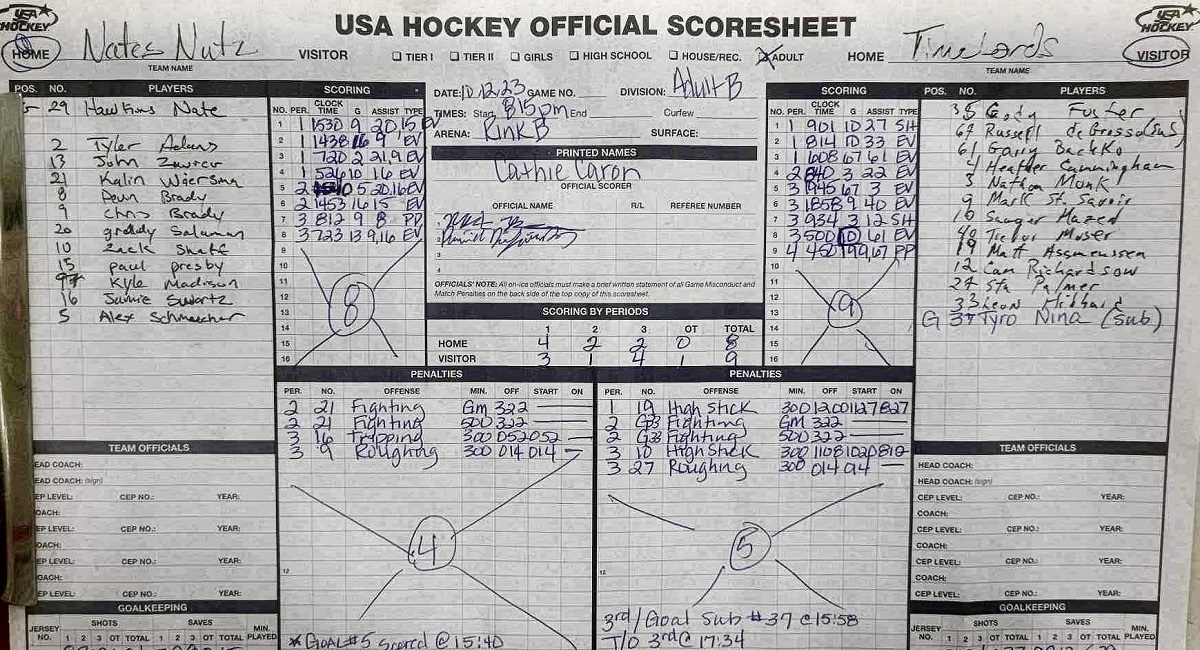 USA HOCKEY
USA HOCKEY OFFICIAL SCORESHEET
USA HOCKEY
HOME Nates Nutz VISITOR
TEAM NAME
TIER I TIER II GIRLS HIGH SCHOOL HOUSE/REC. ADULT
HOME TimeLords VISITOR
TEAM NAME
POS. NO. PLAYERS
29 Hawkins Nate
2 Tyler Adams
13 John
21 Kalin Wiersma
8 Brady
9 Chris Brady
20 grady Salaman
10 Zack
15 paul presby
Kyle Madison
16 Jamie Swartz
5 Alex Schmaecher
SCORING
NO. PER. CLOCK TIME G ASSIST TYPE
1 1 1530 9 20 15 EV
2 1 1438 16 9 EV
3 1 720 2 21,9 EV
4 1 526 10 16 EV
5 2 5 20,16 EV
6 2 1453 16 15 EV
7 3 812 9 8 PP
8 3 723 13 9,16 EV
9
10
11
12
13
14
15
16
8
DATE: 10.12.23 GAME NO. DIVISION: Adult B
TIMES: Start 815pm End Curfew
ARENA: Rink B SURFACE:
PRINTED NAMES
Cathie Caron
OFFICIAL SCORER
OFFICIAL NAME R/L REFEREE NUMBER
1
2
3
4
OFFICIALS' NOTE: All on-ice officials must make a brief written statement of all Game Misconduct and
Match Penalties on the back side of the top copy of this scoresheet.
SCORING BY PERIODS
1 2 3 OT TOTAL
HOME 4 2 2 0 8
VISITOR 3 1 4 1 9
SCORING
NO. PER. CLOCK TIME G ASSIST TYPE
1 1 901 10 27 SH
2 1 814 10 33 EV
3 1 608 67 61 EV
4 2 840 3 22 EV
5 3 1945 67 3 EV
6 3 1858 9 40 EV
7 3 934 3 12 SH
8 3 500 10 61 EV
9 4 450 19 9,67 PP
10
11
12
13
14
15
16
9
POS. NO. PLAYERS
35 Cody Fuller
67 Russell deGrosso (Sub)
61 Garry Backko
4 Heather Cunningham
3 Nathan Munk
9 Mark St. Savoir
10 Sawyer Hazen
40 Trevor Moser
19 Matt Assmeussen
12 Cam Richardson
27 Sta Palmer
33 Leon
G 37 Tyro Nina (sub)
PENALTIES
PER. NO. OFFENSE MIN. OFF START ON
2 21 Fighting GM 322
2 21 Fighting 500 322
3 16 Tripping 300 052 052
3 9 Roughing 300 014 014
4
12
*GOAL #5 Scored @ 15:40
PENALTIES
PER. NO. OFFENSE MIN. OFF START ON
1 19 High Stick 300 1200 1127 827
2 G33 Fighting GM 322
2 G33 Fighting 500 322
3 10 High Stick 300 1108 1020 812
3 27 Roughing 300 014 014
5
12
3rd/Goal Sub #37 @ 15:58
T/O 3rd @ 17:34
TEAM OFFICIALS
EAD COACH:
EAD COACH: (sign)
EP LEVEL: CEP NO.: YEAR:
OACH:
EP LEVEL: CEP NO.: YEAR:
OACH:
EP LEVEL: CEP NO.: YEAR:
OACH:
EP LEVEL: CEP NO.: YEAR:
GOALKEEPING
JERSEY NO. SHOTS SAVES MIN. PLAYED
1 2 3 OT TOTAL 1 2 3 OT TOTAL
TEAM OFFICIALS
HEAD COACH:
HEAD COACH: (sign)
CEP LEVEL: CEP NO.: YEAR:
COACH:
CEP LEVEL: CEP NO.: YEAR:
COACH:
CEP LEVEL: CEP NO.: YEAR:
COACH:
CEP LEVEL: CEP NO.: YEAR:
GOALKEEPING
JERSEY NO. SHOTS SAVES MIN. PLAYED
1 2 3 OT TOTAL 1 2 3 OT TOTAL